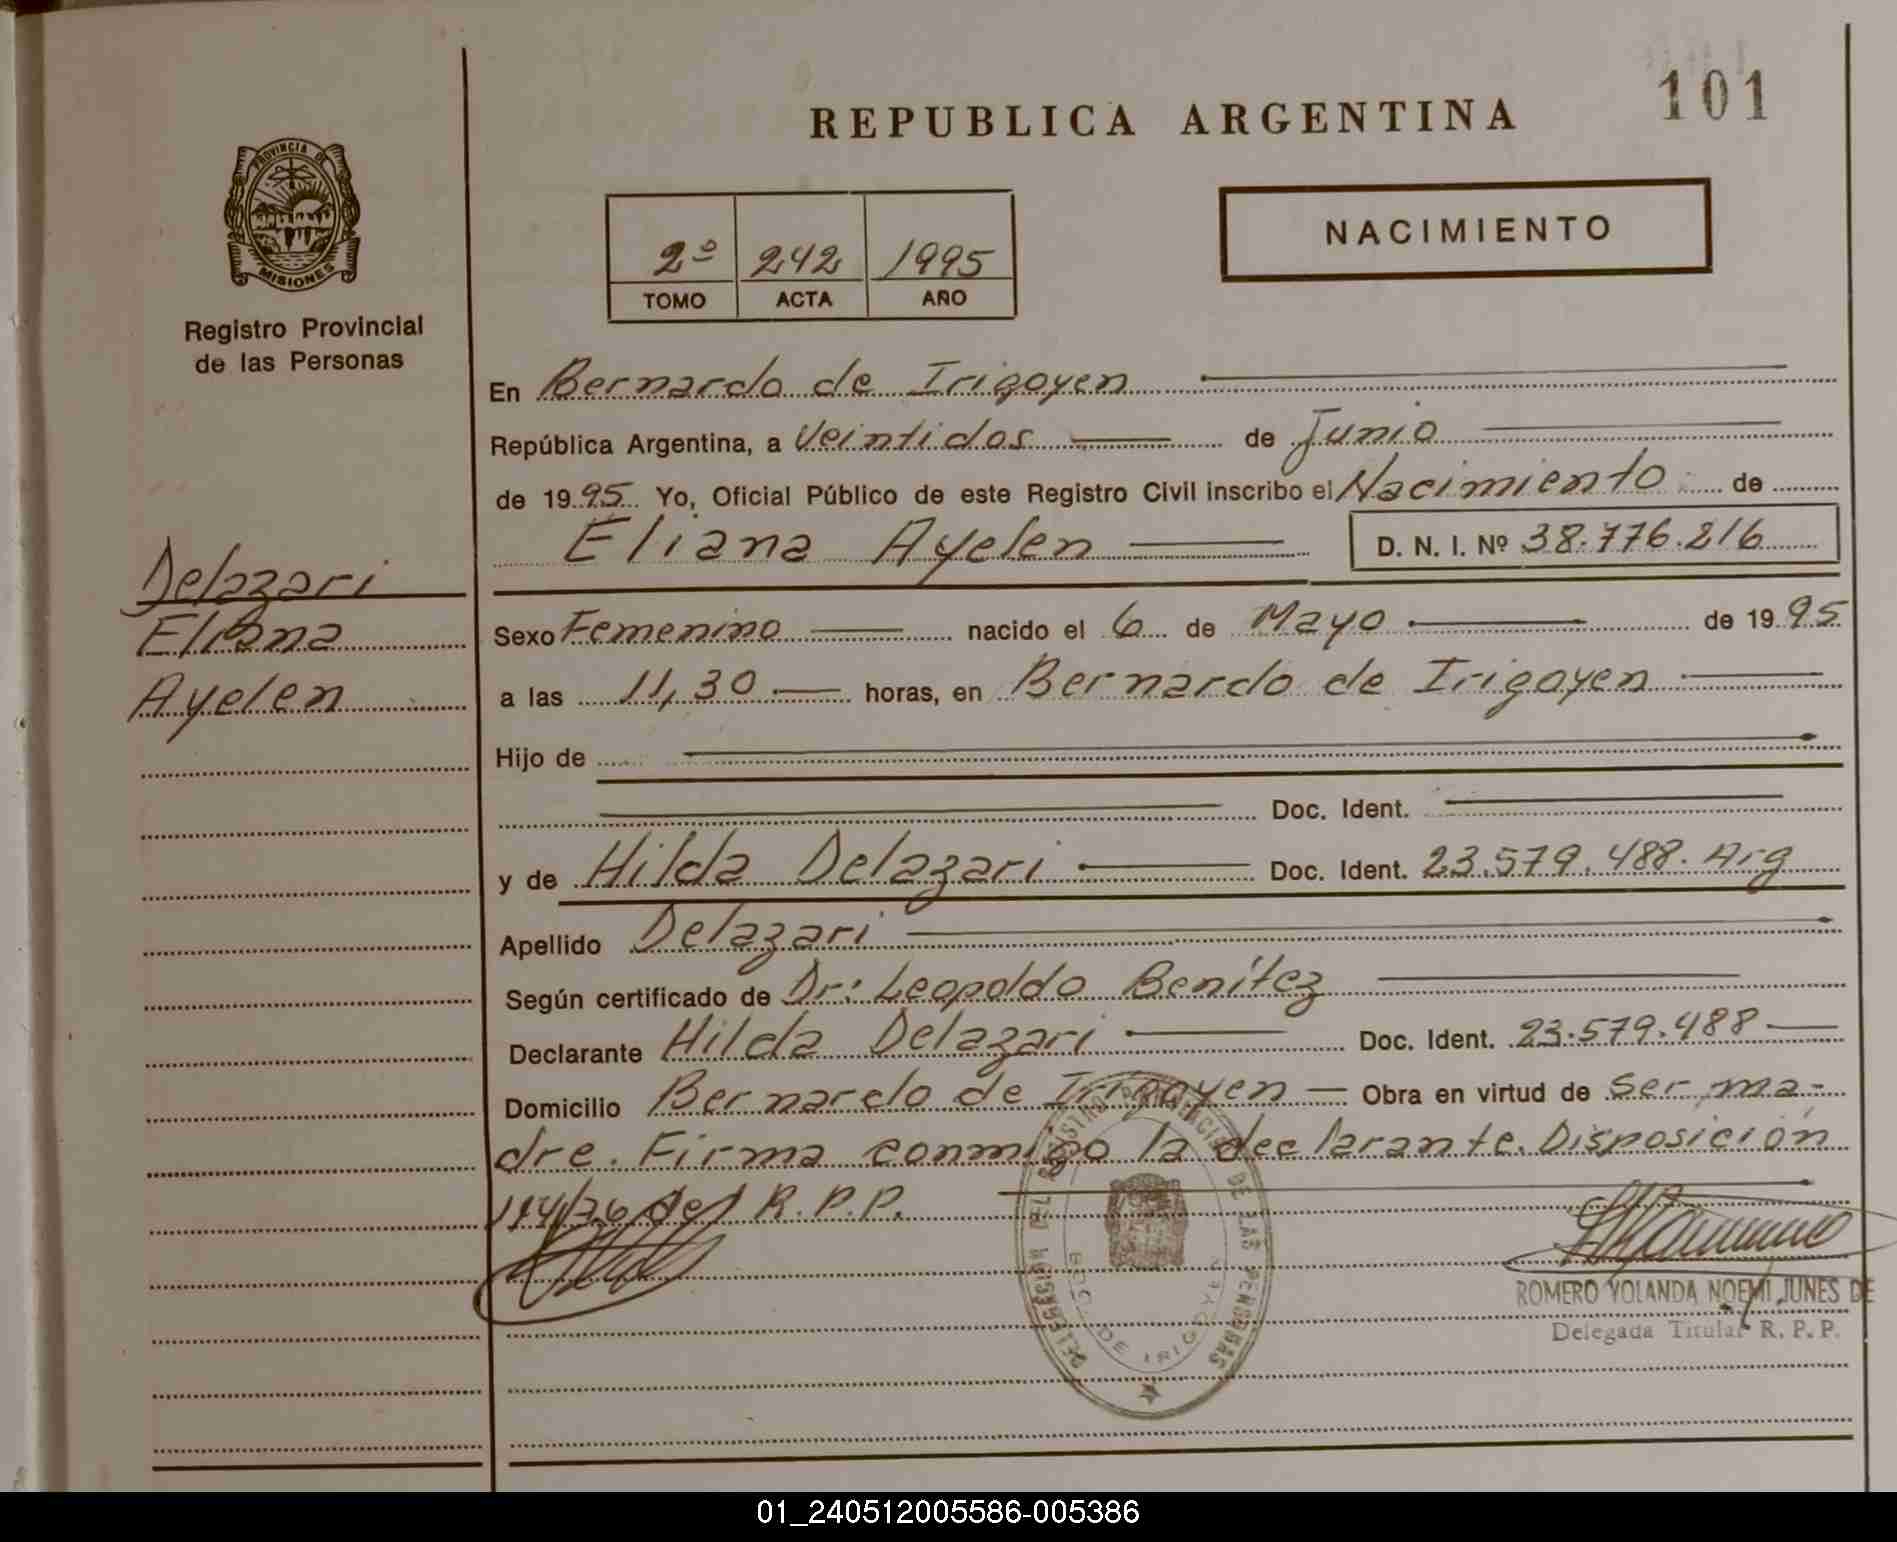 101
REPUBLICA ARGENTINA
PROVINCIA DE
MISIONES
Registro Provincial
de las Personas
NACIMIENTO
2º 242 1995
TOMO ACTA AÑO
En Bernardo de Irigoyen
República Argentina, a Veintidos de Junio
de 1995 Yo, Oficial Público de este Registro Civil inscribo el Nacimiento de
Eliana Ayelen D. N. I. Nº 38.776.216
Delazari
Eliana
Ayelen
Sexo Femenino nacido el 6 de Mayo de 1995
a las 11,30 horas, en Bernardo de Irigoyen
Hijo de
Doc. Ident.
y de Hilda Delazari Doc. Ident. 23.579.488. Arg
Apellido Delazari
Según certificado de Dr: Leopoldo Benítez
Declarante Hilda Delazari Doc. Ident. 23.579.488
Domicilio Bernardo de Irigoyen Obra en virtud de ser ma-
dre. Firma conmigo la declarante. Disposición
114/76 del R.P.P.
DELEGACION DEL REGISTRO PROVINCIAL DE LAS PERSONAS
BDO. DE IRIGOYEN
ROMERO YOLANDA NOEMI JUNES DE
Delegada Titular R. P. P.
01_240512005586-005386